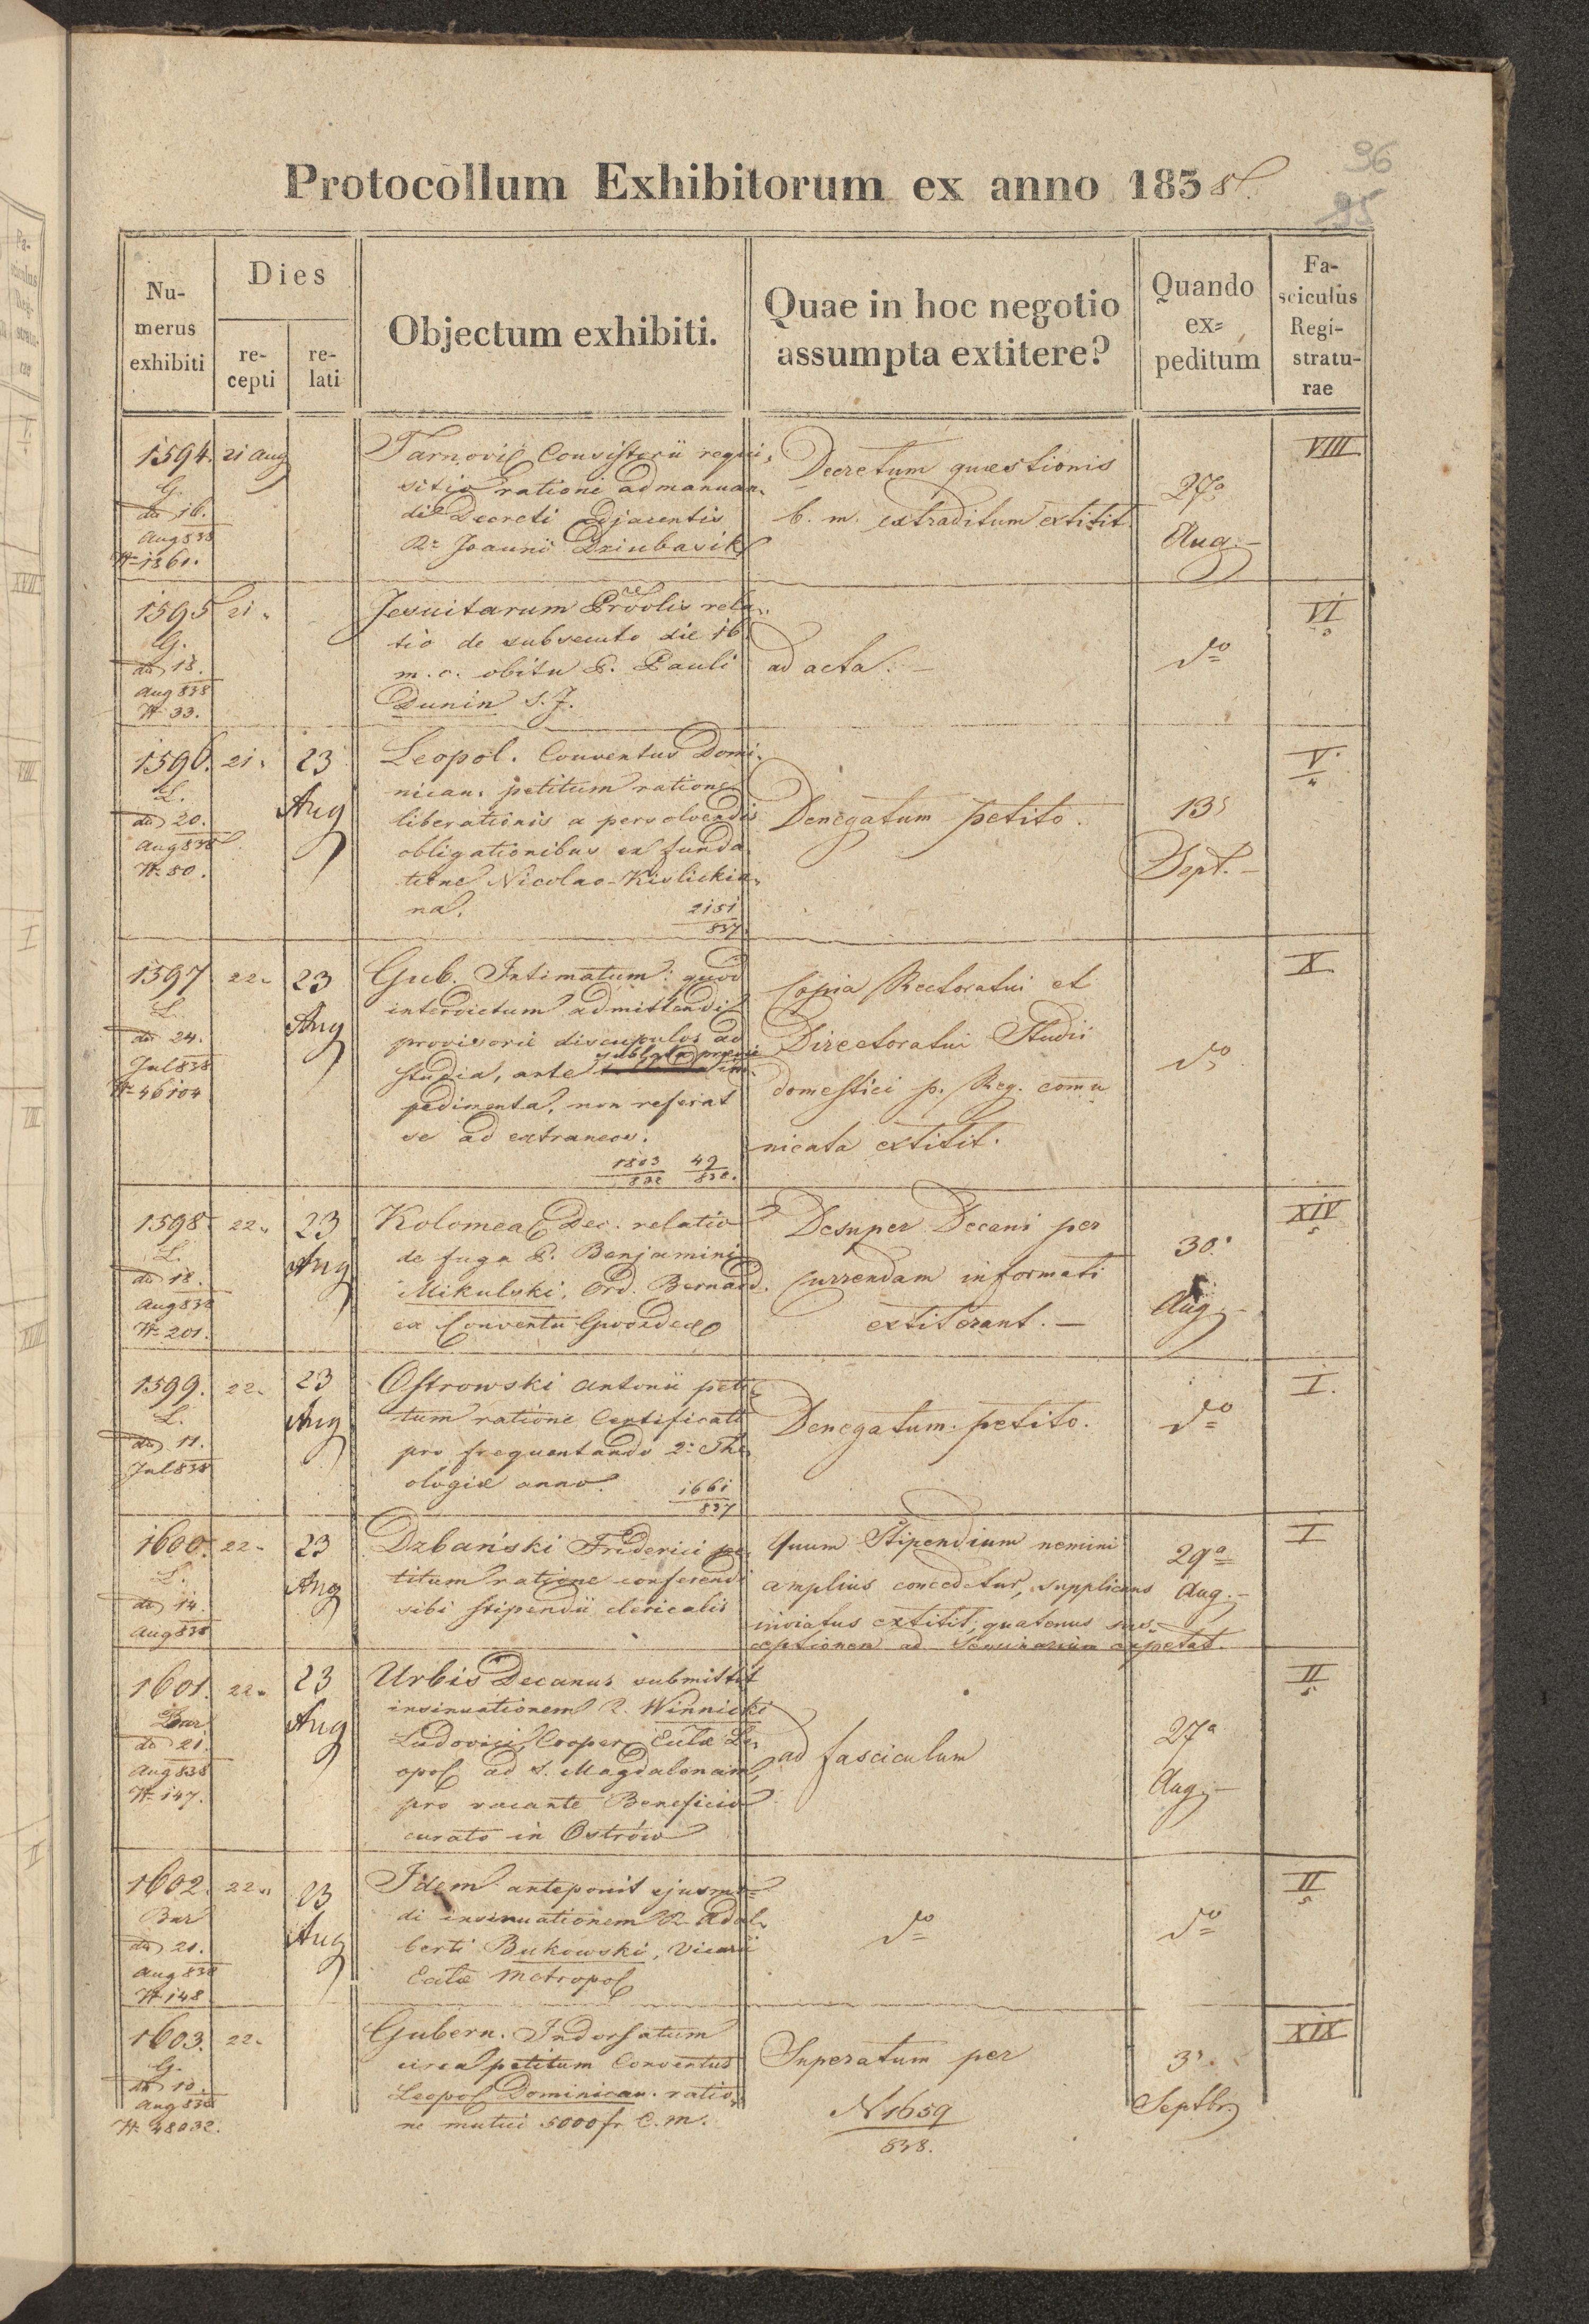 96
95
Protocollum Exhibitorum ex anno 1838.
Nu-
merus
exhibiti
Dies
re-
cepti
re-
lati
Objectum exhibiti.
Quae in hoc negotio
assumpta extitere?
Quando
ex-
peditum
Fa-
sciculus
Regi-
stratu-
rae
1594. 21 Aug
G.
do 16.
Aug 838
N 1361.
Tarnovi Consistorii requi-
sitio ratione admanuan-
di Decreti adjacentis
Rx Joanni Dziubasik
Decretum quaestionis
b. m. extraditum extitit.
27a
Aug.
VIII
1595 21.
G.
do 18.
Aug 838
N 33.
Jesuitarum Provolis rela-
tio de subsecuto die 16
m. c. obitu P. Pauli
Dunin S. J.
ad acta.
do
VI
1596. 21.
L.
do 20.
Aug 838
N 50.
23
Aug
Leopol. Conventus Domi-
nican. petitum ratione
liberationis a persolvendis
obligationibus ex funda-
tione Nicolao-Kislickia-
na.
2151
837
Denegatum petito.
13
Sept.
V.
4
1597 22.
L.
do 24.
Jul 838
N 46104
23
Aug
Gub. Intimatum: quod
interdictum admittendi
provisorie discupulos ad
sublata praevie
studia, ante im-
pedimenta, non referat
se ad extraneos.
1803 49
838.
Copia Rectoratui et
Directoratui Studii
domestici p. Reg. comu
nicata extitit.
do
X
1598. 22.
L.
do 18.
Aug 838
N 201.
23
Aug
Kolomea Dec. relatio
de fuga P. Benjamini
Mikulski, Ord. Bernard.
ex Conventu Gwozdec
Desuper Decani per
Currendam informati
extiterant.
30.
Aug.
XIV
5
1599. 22.
L.
do 11.
Jul 838
23
Aug
Ostrowski Antonii peti-
tum ratione Certificati
pro frequentando 2. The-
ologiæ anno.
1661
837
Denegatum petito.
do
I.
1600. 22.
L.
do 14.
Aug 838
23
Aug
Dzbański Friderici pe-
titum ratione conferendi
sibi stipendii clericalis
Quum Stipendium nemini
amplius concedetur, supplicans
inviatus extitit, quatenus sus-
ceptionem ad Seminarium expetat.
29a
Aug.
I
1601. 22.
Bar
do 21.
Aug 838
N 147.
23
Aug
Urbis Decanus submittit
insinuationem R. Winnicki
Ludovici, Cooper. Ecclæ Le-
opol ad S. Magdalenam,
pro vacante Beneficio
curato in Ostrów
ad fasciculum
27a
Aug.
II
5
1602. 22.
Bar
do 21.
Aug 838
N 148
23
Aug
Idem anteponit ejusmo-
di insinuationem R. Adal-
berti Bukowski, Vicarii
Ecclæ Metropol
do
do
II
5
1603. 22.
G.
do 10.
Aug 838
N 48032.
Gubern. Indorsatum
circa petitum Conventus
Leopol Dominican. ratio-
ne mutui 5000 fr C. M.
Superatum per
N 1659
838.
3
Septbr
XIX